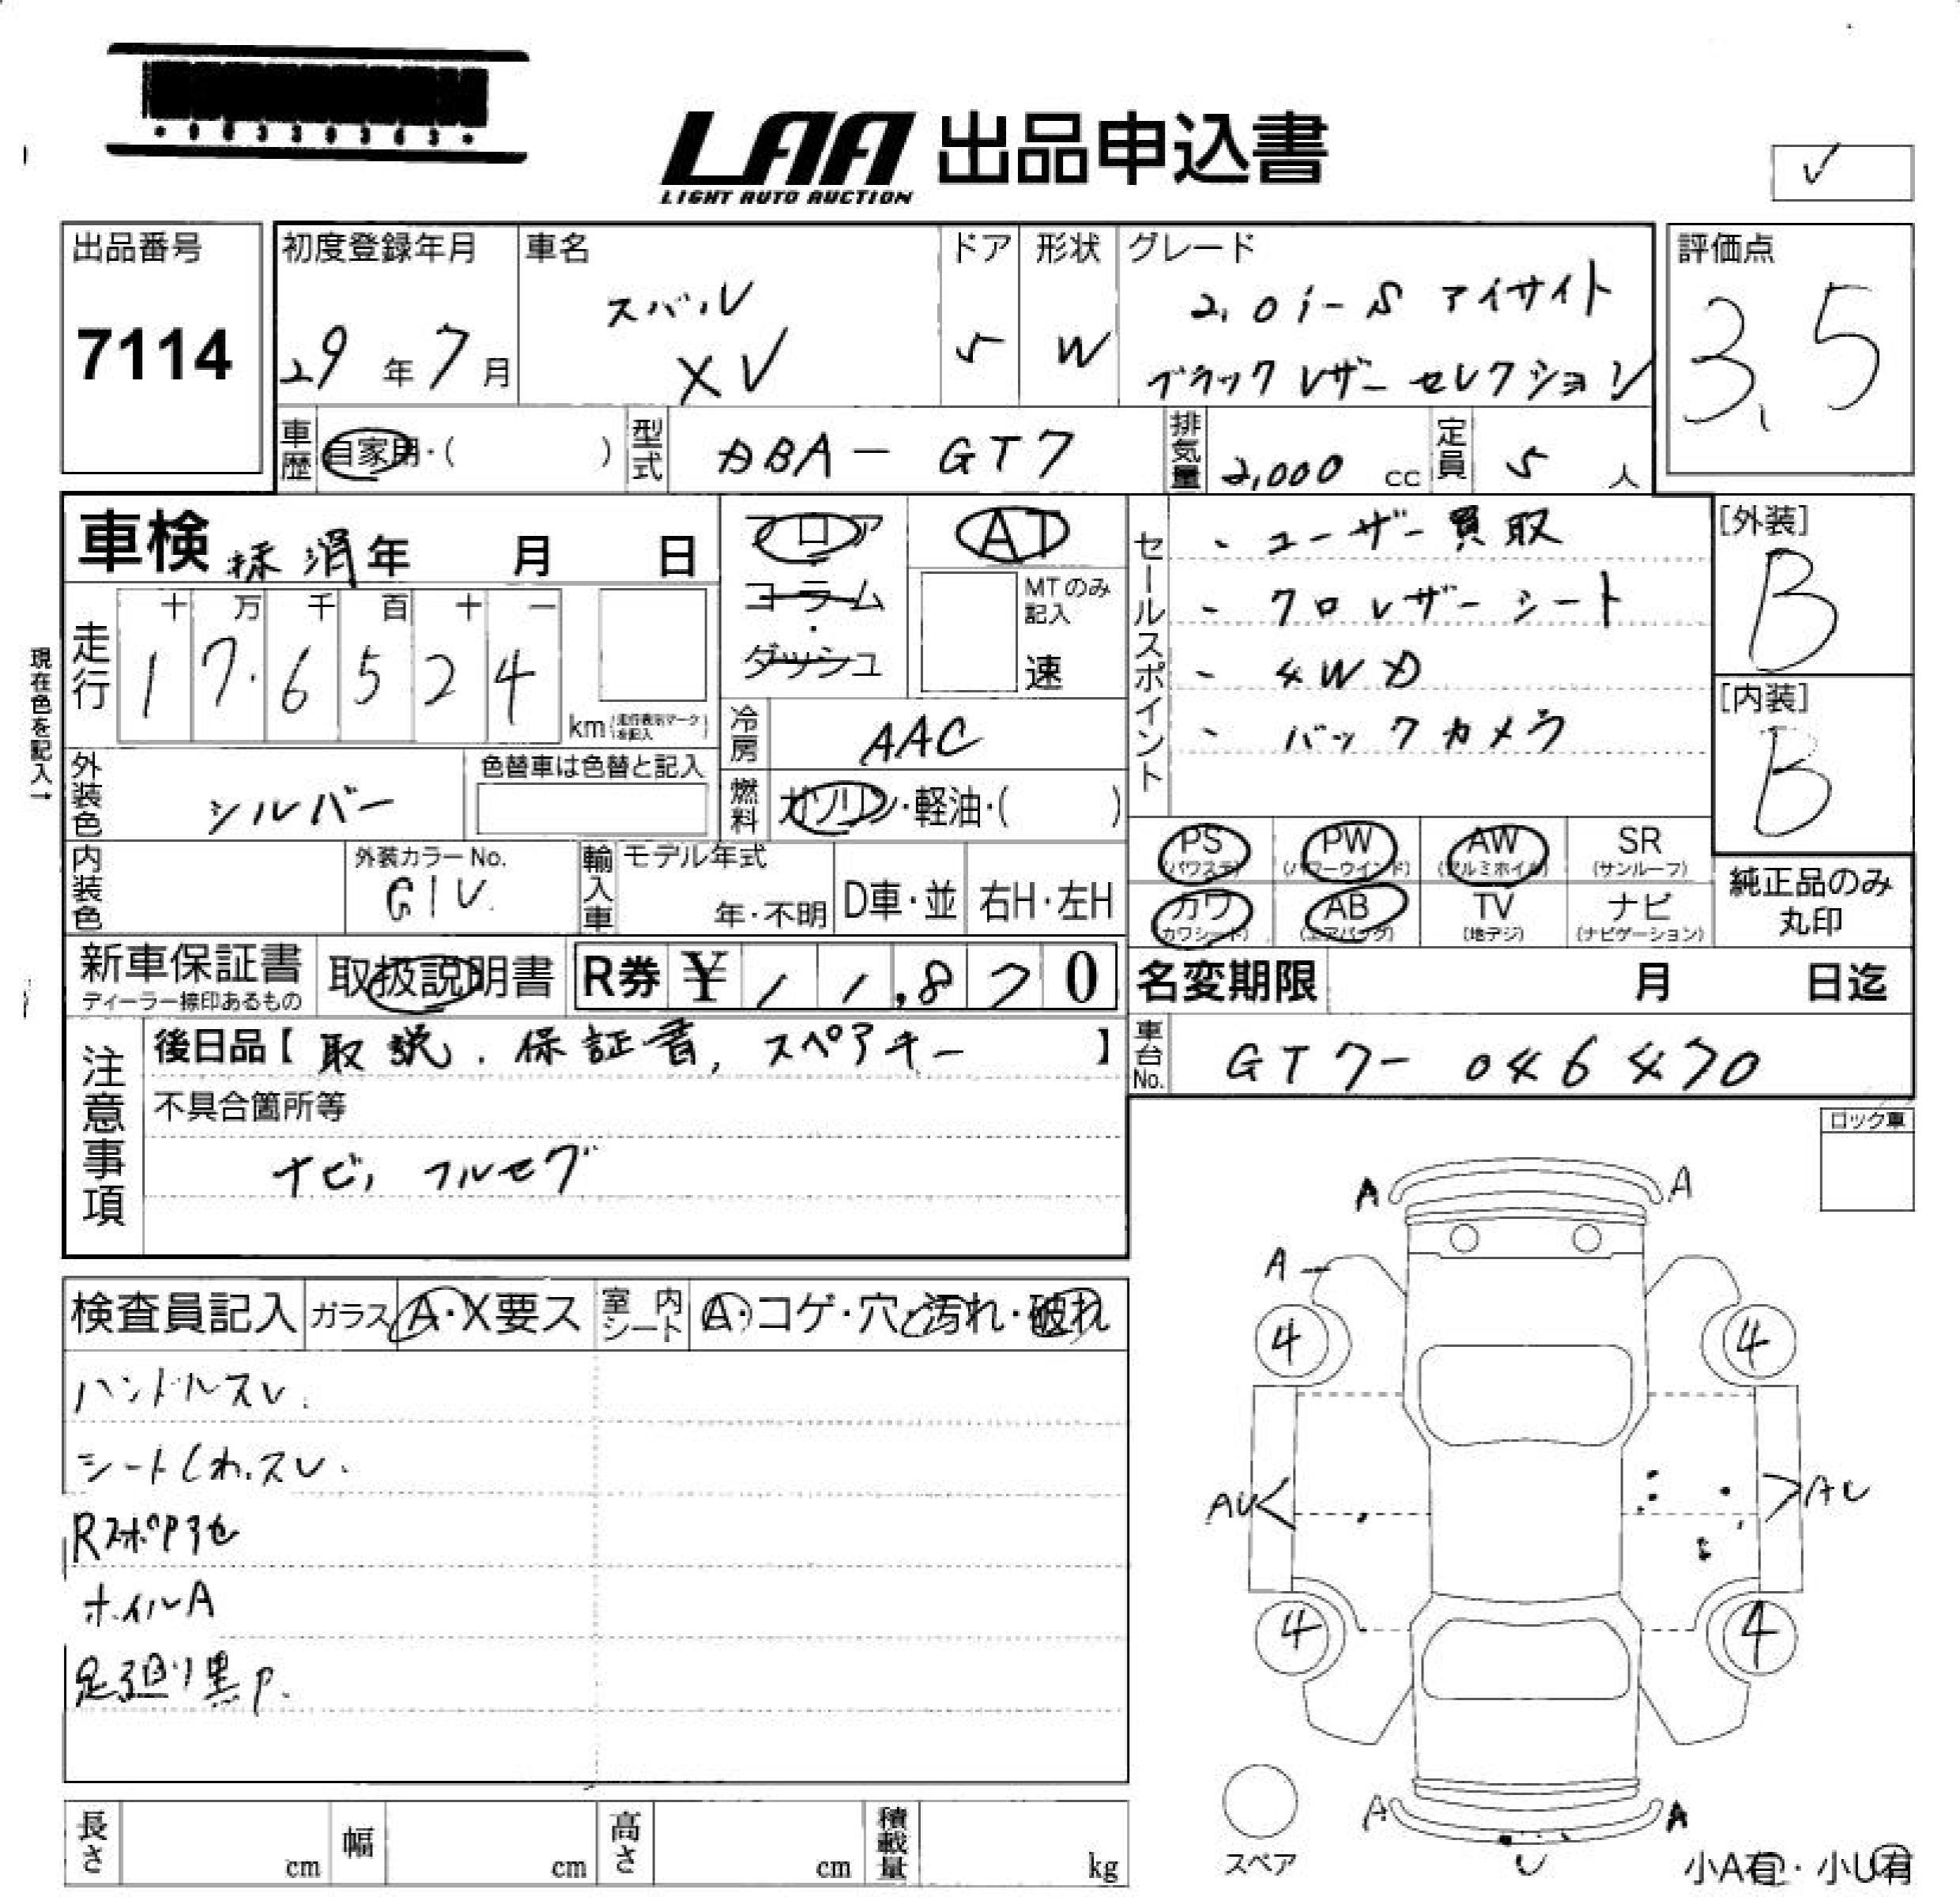 LAA 出品申込書
LIGHT AUTO AUCTION
✓
出品番号
7114
初度登録年月
29年7月
車名
スバル
XV
ドア
5
形状
W
グレード
2.0i-S アイサイト
ブラックレザーセレクション
評価点
3.5
車歴
自家用・( )
型式
DBA-GT7
排気量
2,000 cc
定員
5 人
車検 抹消 年 月 日
フロア
コラム
・
ダッシュ
AT
MTのみ記入
速
走行
十 万 千 百 十 一
176524
km(走行表示マークを記入)
現在色を記入→
外装色
シルバー
色替車は色替と記入
冷房
AAC
燃料
ガソリン・軽油・( )
内装色
外装カラーNo.
G1V
輸入車
モデル年式
年・不明
D車・並
右H・左H
セールスポイント
・ユーザー買取
・クロレザーシート
・4WD
・バックカメラ
[外装]
B
[内装]
B
PS (パワステ)
PW (パワーウインド)
AW (アルミホイル)
SR (サンルーフ)
カワ (カワシート)
AB (エアバッグ)
TV (地デジ)
ナビ (ナビゲーション)
純正品のみ
丸印
新車保証書
ディーラー捺印あるもの
取扱説明書
R券 ¥11,870
名変期限 月 日迄
車台No.
GT7-046470
注意事項
後日品【取説.保証書,スペアキー】
不具合箇所等
ナビ,フルセグ
ロック車
検査員記入
ガラス A・X要ス
室内シート A・コゲ・穴・汚れ・破れ
ハンドルスレ.
シートしわ.スレ.
Rスポアセ
ホイルA
足廻り黒P.
A A
A
4 4
AU AU
4 4
A A
U
スペア
小A有・小U有
長さ cm
幅 cm
高さ cm
積載量 kg